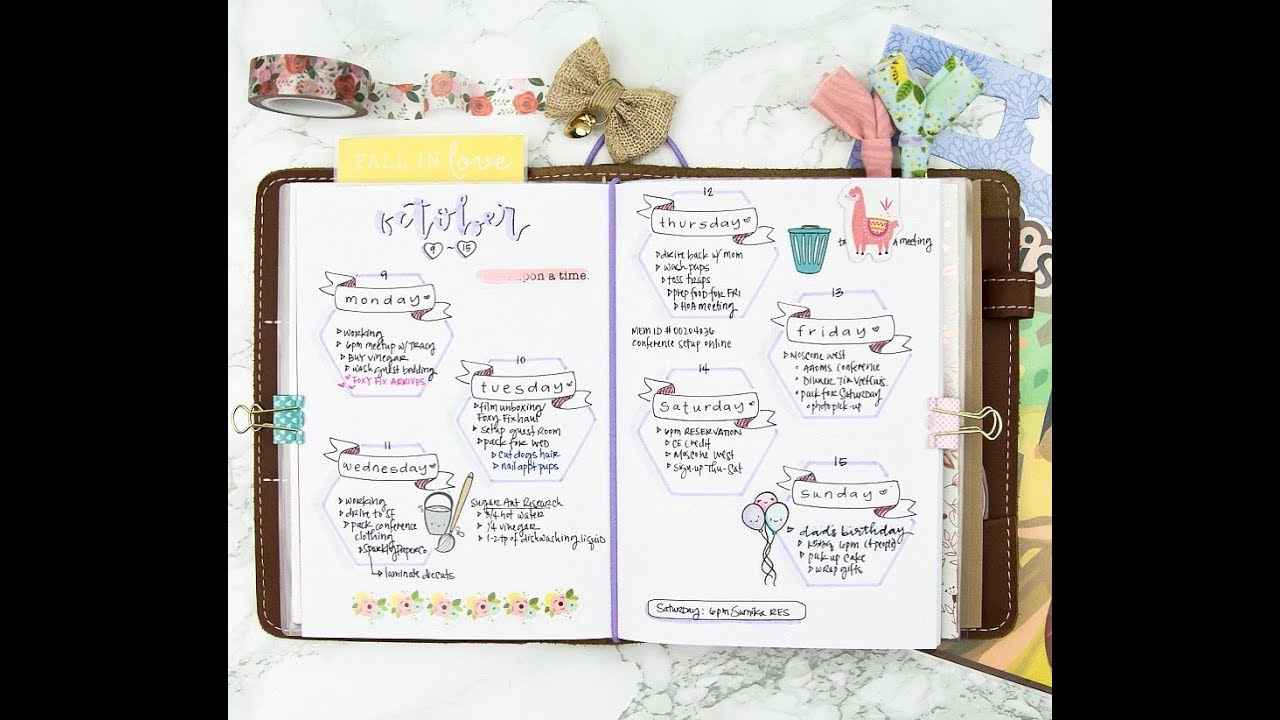 FALL IN love
October
9 ~ 15
upon a time.
9
monday
working
6pm meetup w/ Tracy
Buy vinegar
wash guest bedding
FOXY FIX ARRIVES
10
tuesday
film unboxing/
Foxy Fix haul
setup guest Room
pack for WED
cut dogs hair
nail appt pups
11
wednesday
working
drive to SF
pack conference
clothing
SparklyPaperCo
laminate diecuts
Sugar Ant Research
3/4 hot water
1/4 vinegar
1-2 tp of dishwashing liquid
12
thursday
drive back w/ mom
wash pups
toss traps
prep food for FRI
HOA meeting
MEM ID # 00204036
conference setup online
meeting
13
friday
Moscone West
AAOMS Conference
Dinner
pack for Saturday
photo pick-up
14
Saturday
6pm RESERVATION
CE Credit
Moscone West
sign-up Thu-Sat
15
sunday
dad's birthday
6pm (+ people)
pick up cake
wrap gifts
Saturday: 6pm Sumika RES
is